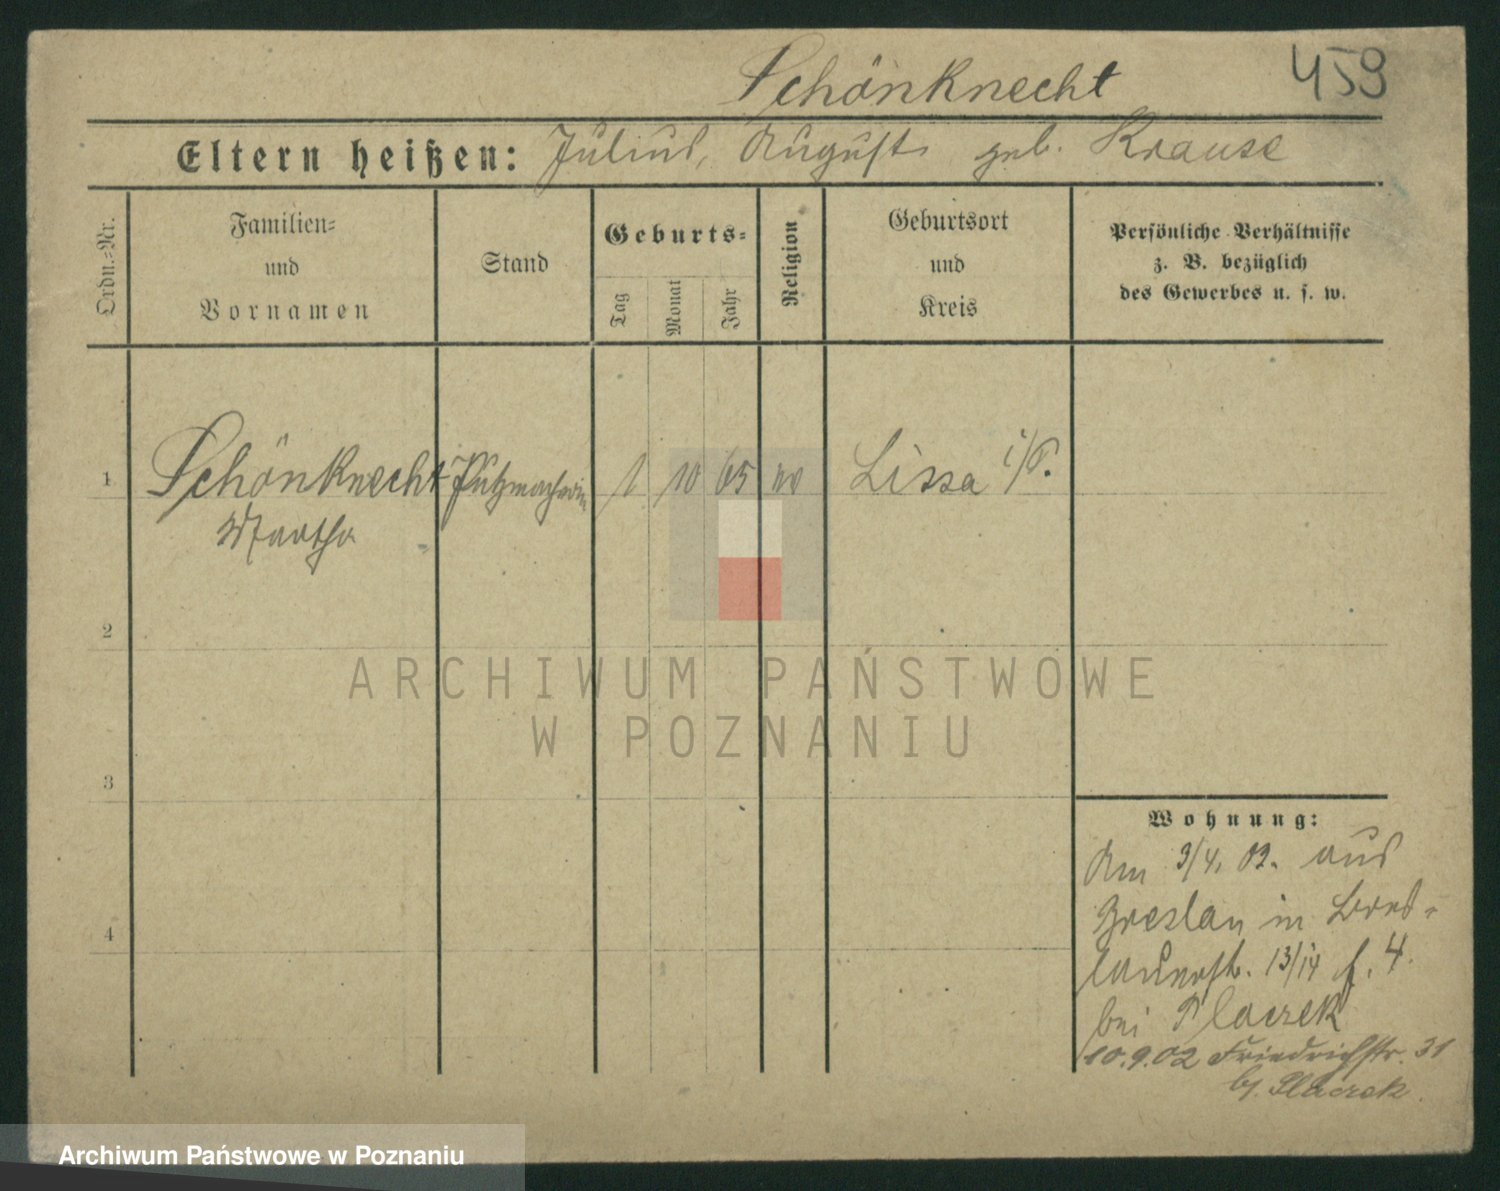 Schönknecht 459
Eltern heißen: Julius, August geb. Krause
Ordn.-Nr.
Familien-
und
Vornamen
Stand
Geburts-
Tag
Monat
Jahr
Religion
Geburtsort
und
Kreis
Persönliche Verhältnisse
z. B. bezüglich
des Gewerbes u. s. w.
1 Schönknecht Putzmacherin 1 10 65 Lissa i/P.
Martha
2
3
4
ARCHIWUM PAŃSTWOWE
W POZNANIU
Wohnung:
Am 3/4. 02. aus
Breslau in Bres-
lauerstr. 13/14 f. 4.
bei Placzek
10.9.02 Friedrichstr. 31
by. Placzek.
Archiwum Państwowe w Poznaniu